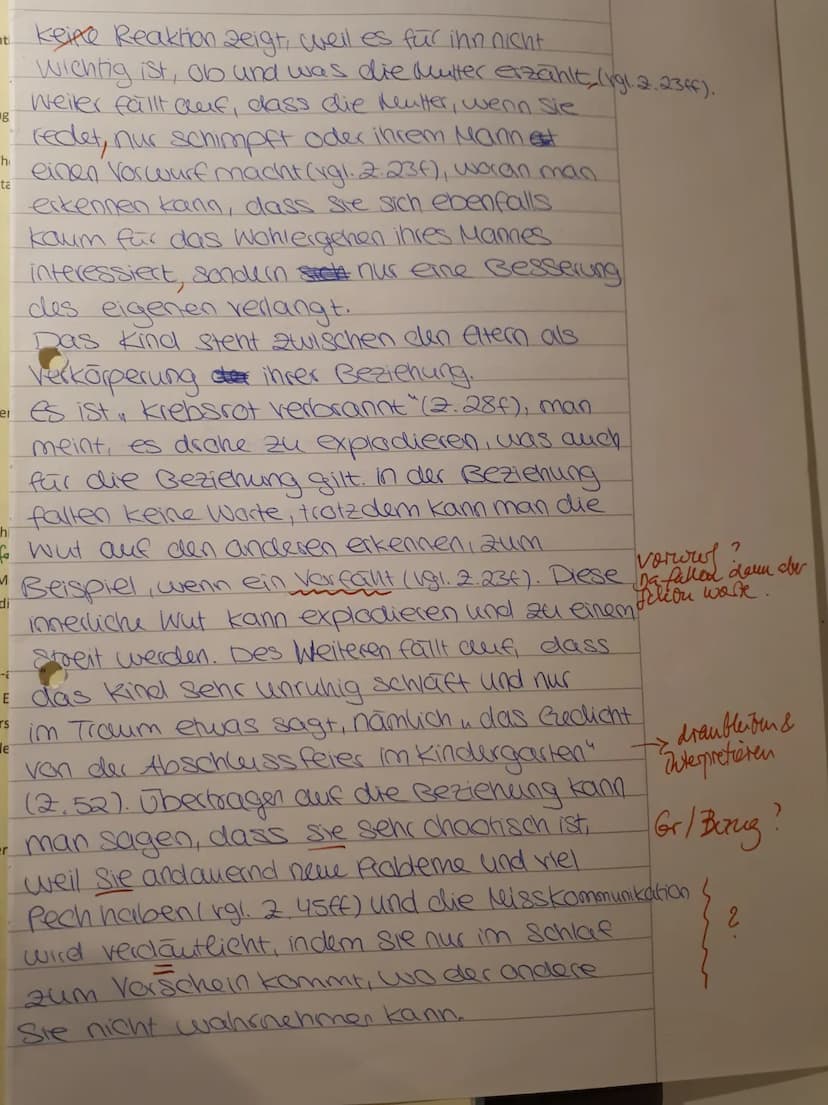 keine Reaktion zeigt, weil es für ihn nicht
wichtig ist, ob und was die Mutter erzählt, (vgl. Z. 23ff).
Weiter fällt auf, dass die Mutter, wenn sie
redet, nur schimpft oder ihrem Mann
einen Vorwurf macht (vgl. Z. 23f), woran man
erkennen kann, dass sie sich ebenfalls
kaum für das Wohlergehen ihres Mannes
interessiert, sondern sich nur eine Besserung
des eigenen verlangt.
Das Kind steht zwischen den Eltern als
Verkörperung der ihrer Beziehung.
Es ist „krebsrot verbrannt" (Z. 28f), man
meint, es drohe zu explodieren, was auch
für die Beziehung gilt. In der Beziehung
fallen keine Worte, trotzdem kann man die
Wut auf den anderen erkennen, zum
Beispiel, wenn ein Vorfällt (vgl. Z. 23f). Diese
Vorwurf?
Da fallen dann aber
schon Worte.
innerliche Wut kann explodieren und zu einem
Streit werden. Des Weiteren fällt auf, dass
das Kind sehr unruhig schläft und nur
im Traum etwas sagt, nämlich „das Gedicht
von der Abschlussfeier im Kindergarten"
→ dranbleiben &
interpretieren
(Z. 52). Übertragen auf die Beziehung kann
man sagen, dass sie sehr chaotisch ist,
Gr/Bezug?
weil sie andauernd neue Probleme und viel
Pech haben (vgl. Z. 45ff) und die Misskommunikation
wird verdäutlicht, indem sie nur im Schlaf
?
zum Vorschein kommt, wo der andere
sie nicht wahrnehmen kann.